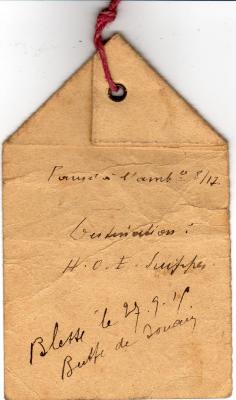 Pansé à l'amb^ce 8/17
Destination :
H.O.E. Suippes
Blessé le 27.9.15
Butte de Souain